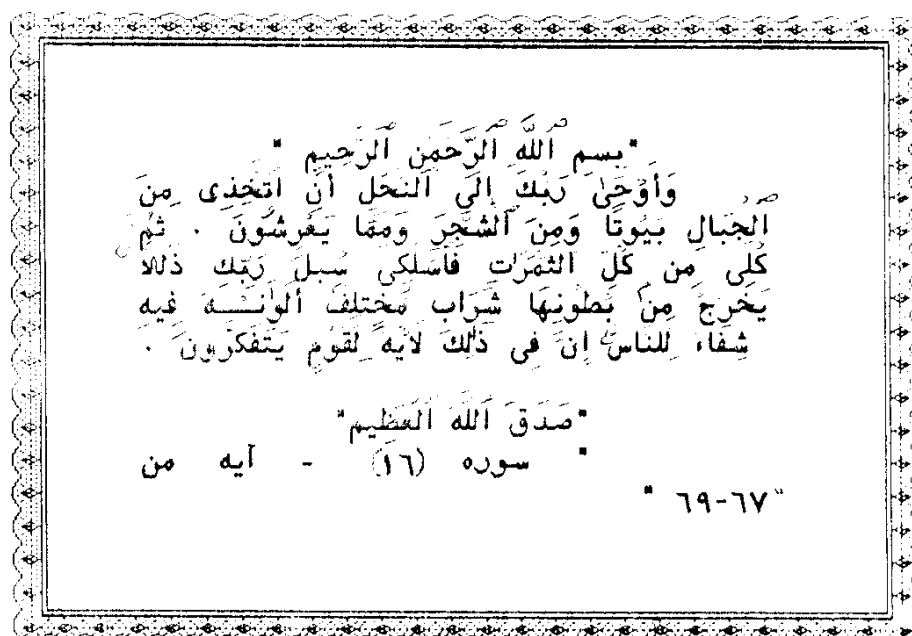 "بسم ٱللَّه ٱلرَّحمَن ٱلرَّحِيم "
وَأَوْحَىٰ رَبُّكَ إِلَى ٱلنَّحْلِ أَنِ ٱتَّخِذِى مِنَ
ٱلْجِبَالِ بُيُوتًا وَمِنَ ٱلشَّجَرِ وَمِمَّا يَعْرِشُونَ . ثُمَّ
كُلِى مِن كُلِّ الثَّمَرَٰتِ فَاسْلُكِى سُبُلَ رَبِّكِ ذُلُلًا
يَخْرُجُ مِنْ بُطُونِهَا شَرَاب مُخْتَلِف أَلْوَٰنُــه فيه
شِفَاء لِلناس إِن فِى ذَٰلِكَ لَآيَه لِقَوْمٍ يَتَفَكَّرُونَ .
"صَدَقَ ٱللَّه العَظِيم"
" سوره (١٦) - آيه من
٦٧-٦٩ "